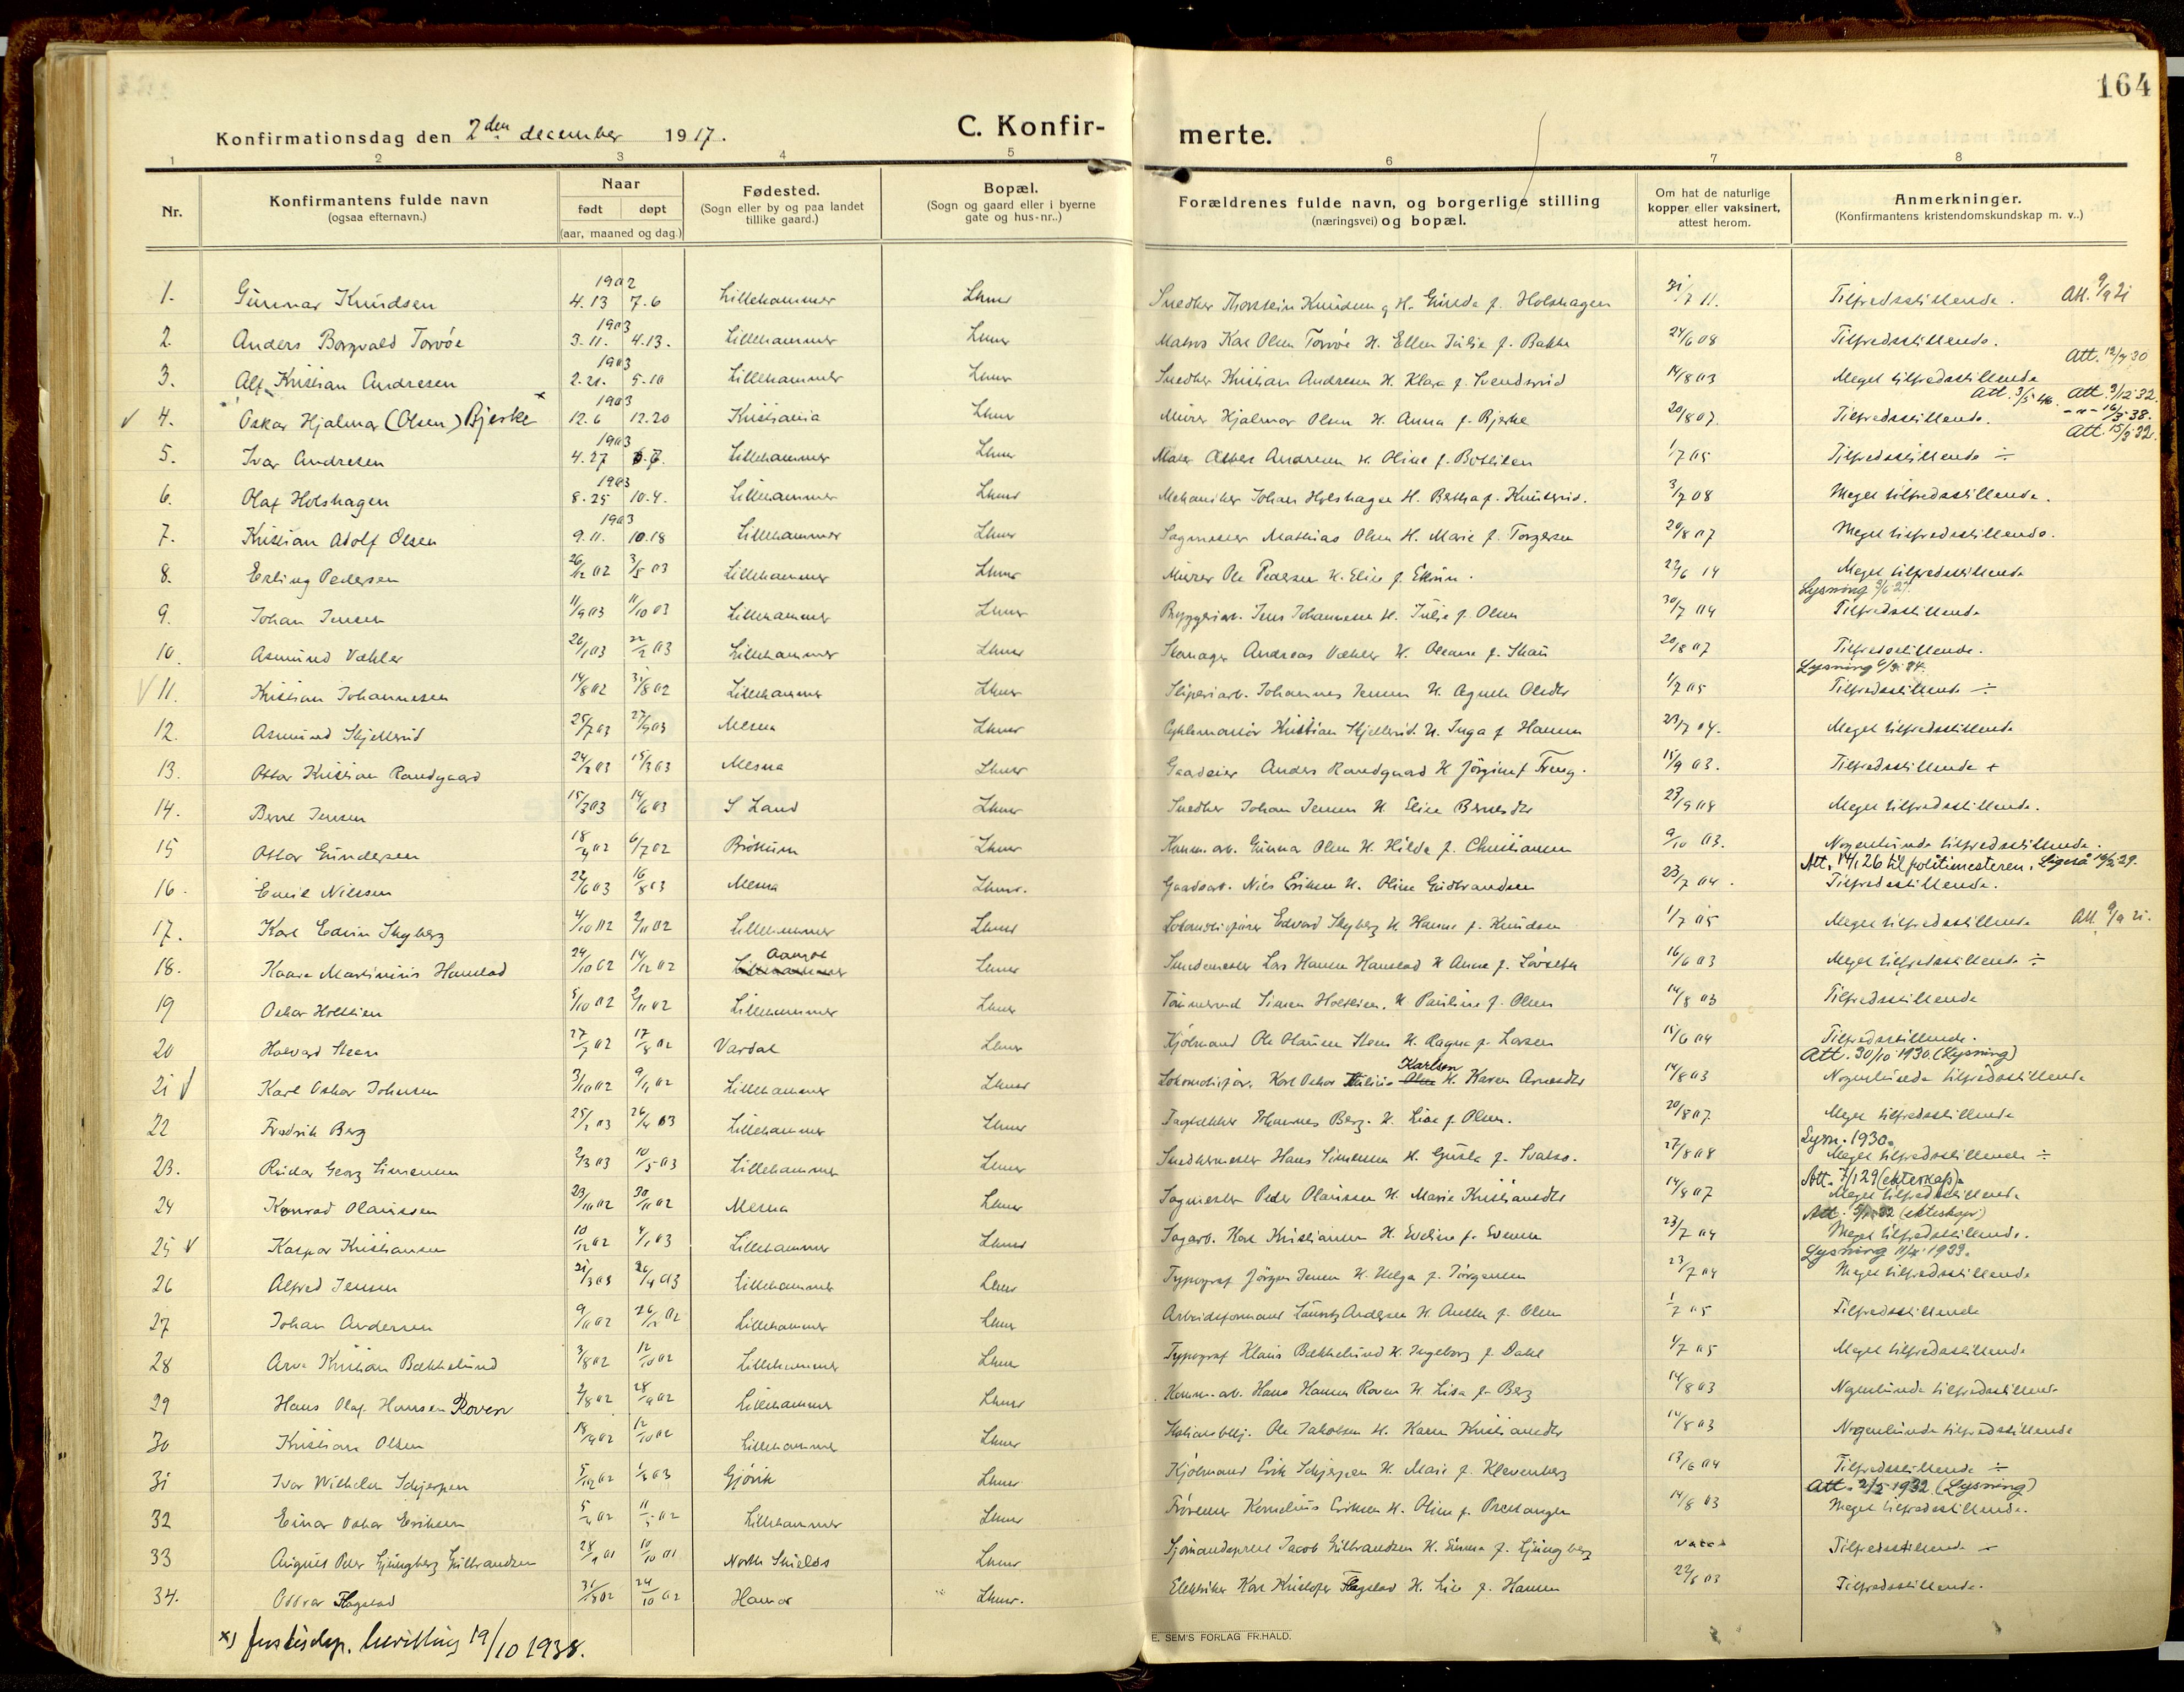 164
Konfirmationsdag den 2den december 1917.
C. Konfir-
merte.
1 2 3 4 5 6 7 8
Nr.
Konfirmantens fulde navn
(ogsaa efternavn.)
Naar
født døpt
(aar, maaned og dag.)
Fødested.
(Sogn eller by og paa landet
tillike gaard.)
Bopæl.
(Sogn og gaard eller i byerne
gate og hus-nr..)
Forældrenes fulde navn, og borgerlige stilling
(næringsvei) og bopæl.
Om hat de naturlige
kopper eller vaksinert,
attest herom.
Anmerkninger.
(Konfirmantens kristendomskundskap m. v..)
1. Gunnar Knudsen 1902 4.13 7.6 Lillehammer Lhmr Snedker Thorstein Knudsen og H. Gunda f. Holshagen 21/7 11. Tilfredsstillende. Att. 9/9 21
2. Anders Borgvald Torvöe 1903 3.11. 4.13. Lillehammer Lhmr Matros Karl Olsen Torvöe H. Ellen Julie f. Bakke 24/6 08 Tilfredsstillende.
Att. 12/4 30
3. Alf Kristian Andresen 1903 2.21. 5.10 Lillehammer Lhmr Snedker Kristian Andresen H. Klara f. Svendsrud 14/8 03 Meget tilfredsstillende
Att. 3/5 46. Att. 9/12 32.
4. Oskar Hjalmar (Olsen) Bjerke x 1903 12.6 12.20 Kristiania Lhmr Murer Hjalmar Olsen H. Anna f. Bjerke 20/8 07. Tilfredsstillende. - " - 16/3 38.
Att. 15/3 32.
5. Ivar Andresen 1903 4.27 6.7. Lillehammer Lhmr Maler Albert Andresen H. Oline f. Bötliken 1/7 05 Tilfredsstillende ÷
6. Olaf Holshagen 1903 8.25 10.4. Lillehammer Lhmr Mekaniker Johan Holshagen H. Bertha f. Knutsrud. 3/7 08 Meget tilfredsstillende.
7. Kristian Adolf Olsen 1903 9.11. 10.18 Lillehammer Lhmr Sagmester Mathias Olsen H. Marie f. Torgersen 20/8 07 Meget tilfredsstillende.
8. Erling Pedersen 26/12 02 3/5 03 Lillehammer Lhmr Murer Ole Pedersen H. Elise f. Ekrum. 22/6 14 Meget tilfredsstillende
Lysning 9/6 27.
9. Johan Jensen 11/9 03 11/10 03 Lillehammer Lhmr Bryggeriarb. Jens Johannesen H. Julie f. Olsen 30/7 04 Tilfredsstillende
10. Asmund Væhler 26/1 03 22/2 03 Lillehammer Lhmr Skomager Andreas Væhler H. Oleane f. Skau 20/8 07 Tilfredsstillende.
Lysning 6/3 34.
11. Kristian Johannesen 14/8 02 31/8 02 Lillehammer Lhmr Sliperiarb. Johannes Jensen H. Agnete Olsdtr 1/7 05 Tilfredsstillende ÷
12. Asmund Skjellerud 25/7 03 27/9 03 Mesna Lhmr Cyklemontör Kristian Skjellerud H. Inga f. Hansen 23/7 04. Meget tilfredsstillende
13. Ottar Kristian Randgaard 24/2 03 15/3 03 Mesna Lhmr Gaardeier Anders Randgaard H. Jörgine f. Freng. 15/9 03. Tilfredsstillende +
14. Bernt Jensen 15/3 03 14/6 03 S Land Lhmr Snedker Johan Jensen H. Elise Berntsdtr 23/9 08 Meget tilfredsstillende.
15 Ottar Gundersen 18/4 02 6/7 02 Bröttum Lhmr Komm.arb. Gunnar Olsen H. Hilda f. Christiansen 9/10 03. Nogenlunde tilfredsstillende.
Att. 14/1 26 til politimesteren. Ligeså 14/2 29.
16. Emil Nilssen 22/6 03 16/8 03 Mesna Lhmr. Gaardsarb. Nils Eriksen H. Oline Gudbrandsen 23/7 04. Tilfredsstillende.
17. Karl Edvin Skyberg 4/10 02 2/11 02 Lillehammer Lhmr Lokomotivfører Edvard Skyberg H. Hanna f. Knudsen 1/7 05 Meget tilfredsstillende Att. 9/9 21.
18. Kaare Martinius Hamstad 24/10 02 14/12 02 Lhmr 16/6 03 Meget tilfredsstillende ÷
19 Oskar Holtlien 5/10 02 2/11 02 Lillehammer Lhmr Tömmermd Simen Holtlien. H. Pauline f. Olsen 14/8 03 Tilfredsstillende
20 Halvard Steen 27/7 02 17/8 02 Vardal Lhmr Kjölmand Ole Olausen Steen H. Ragna f. Larsen 15/6 04 Tilfredsstillende.
Att. 30/10 1930. (Lysning)
21 Karl Oskar Johnsen 3/10 02 9/11 02 Lillehammer Lhmr Lokomotivför. Karl Oskar Julius Karlsen H. Karen Arnesdtr 14/8 03 Nogenlunde tilfredsstillende
22 Fredrik Berg 25/2 03 26/4 03 Lillehammer Lhmr Tagtækker Johannes Berg. H. Lise f. Olsen. 20/8 07. Meget tilfredsstillende
Lysn. 1930.
23. Reidar Georg Simensen 2/3 03 10/5 03 Lillehammer Lhmr Snedkermester Hans Simensen H. Gusta f. Svatsö. 27/8 08 Meget tilfredsstillende ÷
Att. 7/1 29 (ekteskap).
24 Konrad Olaussen 23/10 02 30/11 02 Mesna Lhmr Sagmester Peder Olaussen H. Marie Kristiansdtr 14/8 07 Meget tilfredsstillende
25 Kaspar Kristiansen 10/12 02 4/1 03 Lillehammer Lhmr Sagarb. Karl Kristiansen H. Eveline f. Evensen 23/7 04 Meget tilfredsstillende.
Lysning 11/4 1933.
26 Alfred Jensen 21/3 03 26/4 03 Lillehammer Lhmr Typograf Jörgen Jensen H. Helga f. Jörgensen 23/7 04 Meget tilfredsstillende
27 Johan Andersen 9/11 02 26/12 02 Lillehammer Lhmr Arbeidsformand Lauritz Andersen H. Anette f. Olsen 1/7 05 Tilfredsstillende
28 Arne Kristian Bækkelund 3/8 02 12/10 02 Lillehammer Lhmr Typograf Klaus Bækkelund H. Ingeborg f. Dahl 1/7 05 Meget tilfredsstillende
29 Hans Olaf Hansen Roven 2/8 02 28/9 02 Lillehammer Lhmr Komm.arb. Hans Hansen Roven H. Lisa f. Berg 14/8 03 Nogenlunde tilfredsstillende
30 Kristian Olsen 18/9 02 12/10 02 Lillehammer Lhmr Stationsbetj. Ole Jakobsen H. Karen Kristiansdtr 14/8 03 Nogenlunde tilfredsstillende
31 Ivar Wilhelm Schjerpen 5/12 02 1/3 03 Gjövik Lhmr Kjölmand Erik Schjerpen H. Marie f. Klevenberg 13/6 04 Tilfredsstillende ÷
Att. 2/5 1932. (Lysning)
32 Einar Oskar Eriksen 5/4 02 11/5 02 Lillehammer Lhmr Kornelius Eriksen H. Oline f. Prestangen 14/8 03 Meget tilfredsstillende.
33 August Peter Ljungberg Gulbrandsen 28/9 01 10/10 01 North Shields Lhmr Jacob Gulbrandsen H. Emma f. Ljungberg Tilfredsstillende
34. Oddvar Flagstad 31/8 02 24/10 02 Hamar Lhmr. Elektriker Karl Kristofer Flagstad H. Lise f. Hansen 22/6 03 Tilfredsstillende.
x) Justisdep. bevilling 19/10 1938.
E. SEM'S FORLAG FR.HALD.